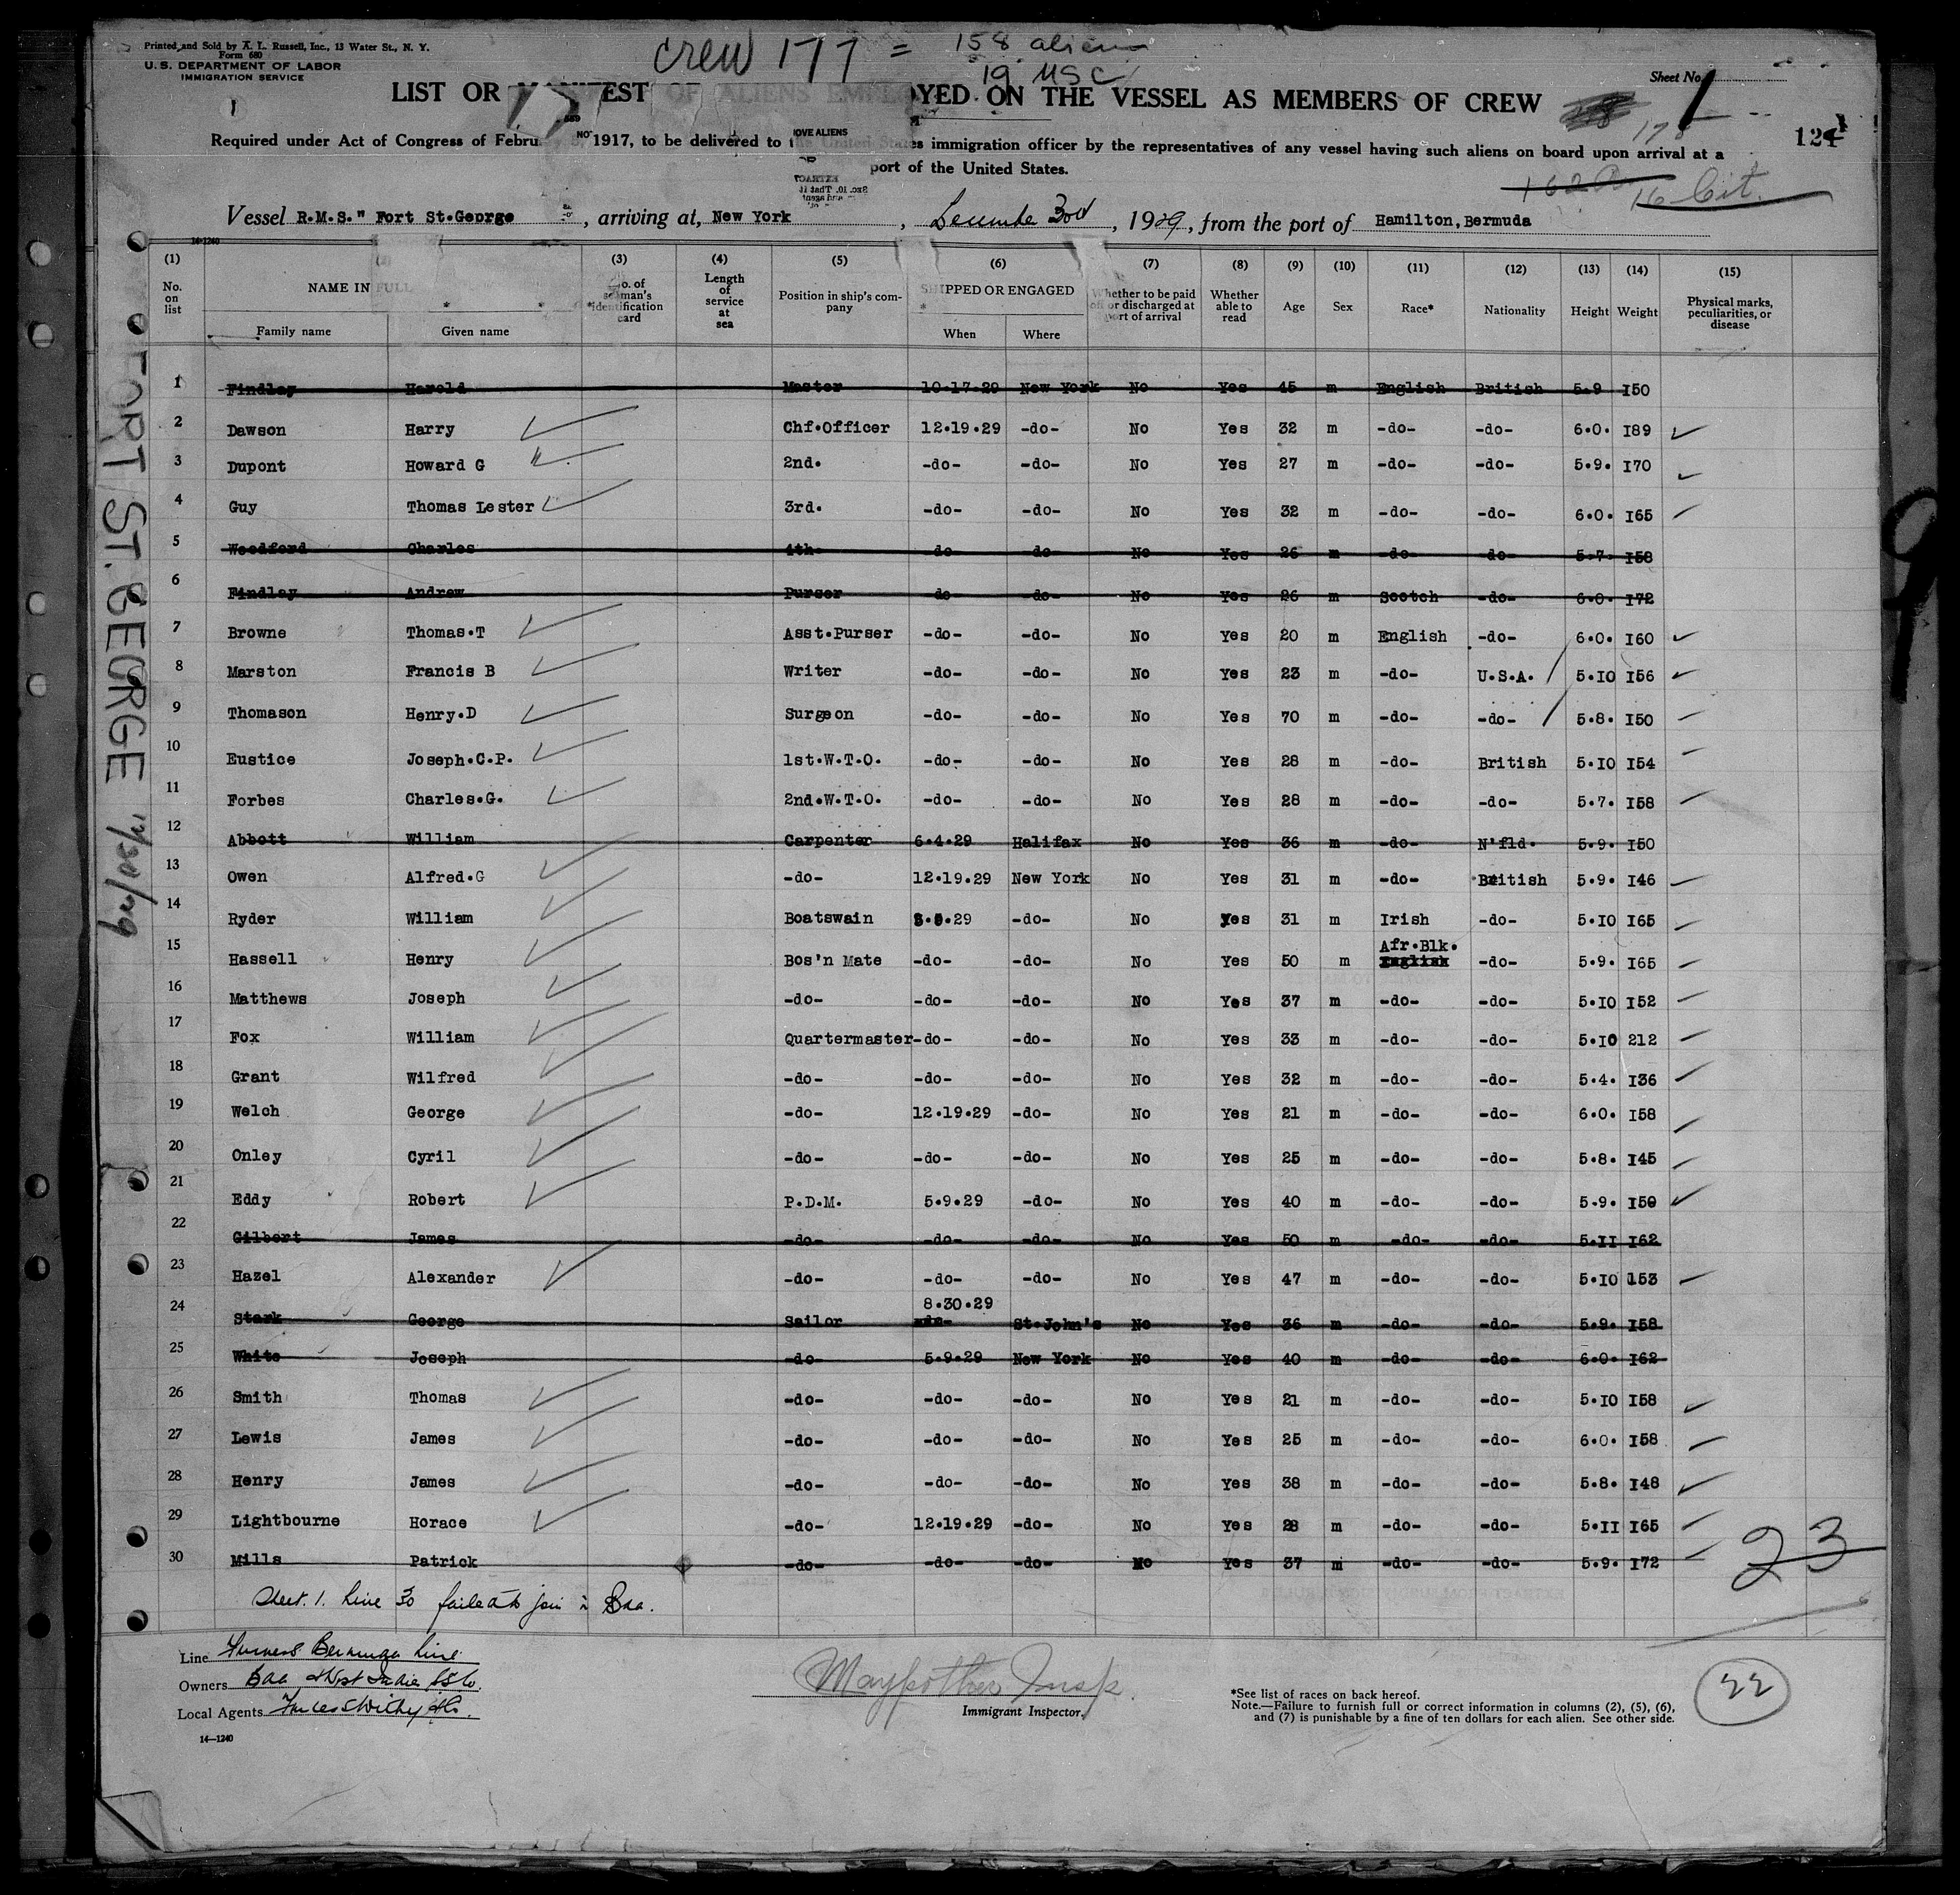 Printed and Sold by A. L. Russell, Inc., 13 Water St., N. Y.
Form 680
U.S. DEPARTMENT OF LABOR
IMMIGRATION SERVICE
crew 177 = 158 aliens
19 USC
Sheet No. 1
LIST OR MANIFEST OF ALIENS EMPLOYED ON THE VESSEL AS MEMBERS OF CREW
Required under Act of Congress of February 5, 1917, to be delivered to the United States immigration officer by the representatives of any vessel having such aliens on board upon arrival at a
port of the United States.
16 Cit.
Vessel R.M.S." Fort St.George, arriving at, New York, 3rd, 1929, from the port of Hamilton, Bermuda
(1) (3) (4) (5) (6) (7) (8) (9) (10) (11) (12) (13) (14) (15)
No. on list NAME IN FULL No. of seaman's identification card Length of service at sea Position in ship's company SHIPPED OR ENGAGED Whether to be paid off or discharged at port of arrival Whether able to read Age Sex Race* Nationality Height Weight Physical marks, peculiarities, or disease
Family name Given name When Where
1 Findlay Harold Master 10.17.29 New York No Yes 45 m English British 5.9 150
2 Dawson Harry Chf.Officer 12.19.29 -do- No Yes 32 m -do- -do- 6.0. 189
3 Dupont Howard G 2nd. -do- -do- No Yes 27 m -do- -do- 5.9. 170
4 Guy Thomas Lester 3rd. -do- -do- No Yes 32 m -do- -do- 6.0. 165
5 Woodford Charles 4th. -do- -do- No Yes 26 m -do- -do- 5.7. 158
6 Findlay Andrew Purser -do- -do- No Yes 26 m Scotch -do- 6.0. 172
7 Browne Thomas.T Asst.Purser -do- -do- No Yes 20 m English -do- 6.0. 160
8 Marston Francis B Writer -do- -do- No Yes 23 m -do- U.S.A. 5.10 156
9 Thomason Henry.D Surgeon -do- -do- No Yes 70 m -do- -do- 5.8. 150
10 Eustice Joseph.C.P. 1st.W.T.O. -do- -do- No Yes 28 m -do- British 5.10 154
11 Forbes Charles.G. 2nd.W.T.O. -do- -do- No Yes 28 m -do- -do- 5.7. 158
12 Abbott William Carpenter 6.4.29 Halifax No Yes 36 m -do- N'fld. 5.9. 150
13 Owen Alfred.G -do- 12.19.29 New York No Yes 31 m -do- British 5.9. 146
14 Ryder William Boatswain -do- No Yes 31 m Irish -do- 5.10 165
15 Hassell Henry Bos'n Mate -do- -do- No Yes 50 m Afr.Blk. English -do- 5.9. 165
16 Matthews Joseph -do- -do- -do- No Yes 37 m -do- -do- 5.10 152
17 Fox William Quartermaster -do- -do- No Yes 33 m -do- -do- 5.10 212
18 Grant Wilfred -do- -do- -do- No Yes 32 m -do- -do- 5.4. 136
19 Welch George -do- 12.19.29 -do- No Yes 21 m -do- -do- 6.0. 158
20 Onley Cyril -do- -do- -do- No Yes 25 m -do- -do- 5.8. 145
21 Eddy Robert P.D.M. 5.9.29 -do- No Yes 40 m -do- -do- 5.9. 150
22 Gilbert James -do- -do- -do- No Yes 50 m -do- -do- 5.11 162
23 Hazel Alexander -do- -do- -do- No Yes 47 m -do- -do- 5.10 153
24 Stark George Sailor 8.30.29 St.John's No Yes 36 m -do- -do- 5.9. 158
25 White Joseph -do- 5.9.29 New York No Yes 40 m -do- -do- 6.0. 162
26 Smith Thomas -do- -do- -do- No Yes 21 m -do- -do- 5.10 158
27 Lewis James -do- -do- -do- No Yes 25 m -do- -do- 6.0. 158
28 Henry James -do- -do- -do- No Yes 38 m -do- -do- 5.8. 148
29 Lightbourne Horace -do- 12.19.29 -do- No Yes 28 m -do- -do- 5.11 165
30 Mills Patrick -do- -do- -do- No Yes 37 m -do- -do- 5.9. 172
23
Sheet. 1. Line 30 failed to join in Bda.
Line Furness Bermuda Line
Owners Bda & West Indies SS Co.
Local Agents Furness Withy & Co.
Maypother Insp.
Immigrant Inspector.
*See list of races on back hereof.
Note.—Failure to furnish full or correct information in columns (2), (5), (6),
and (7) is punishable by a fine of ten dollars for each alien. See other side.
22
14—1240
FORT ST. GEORGE